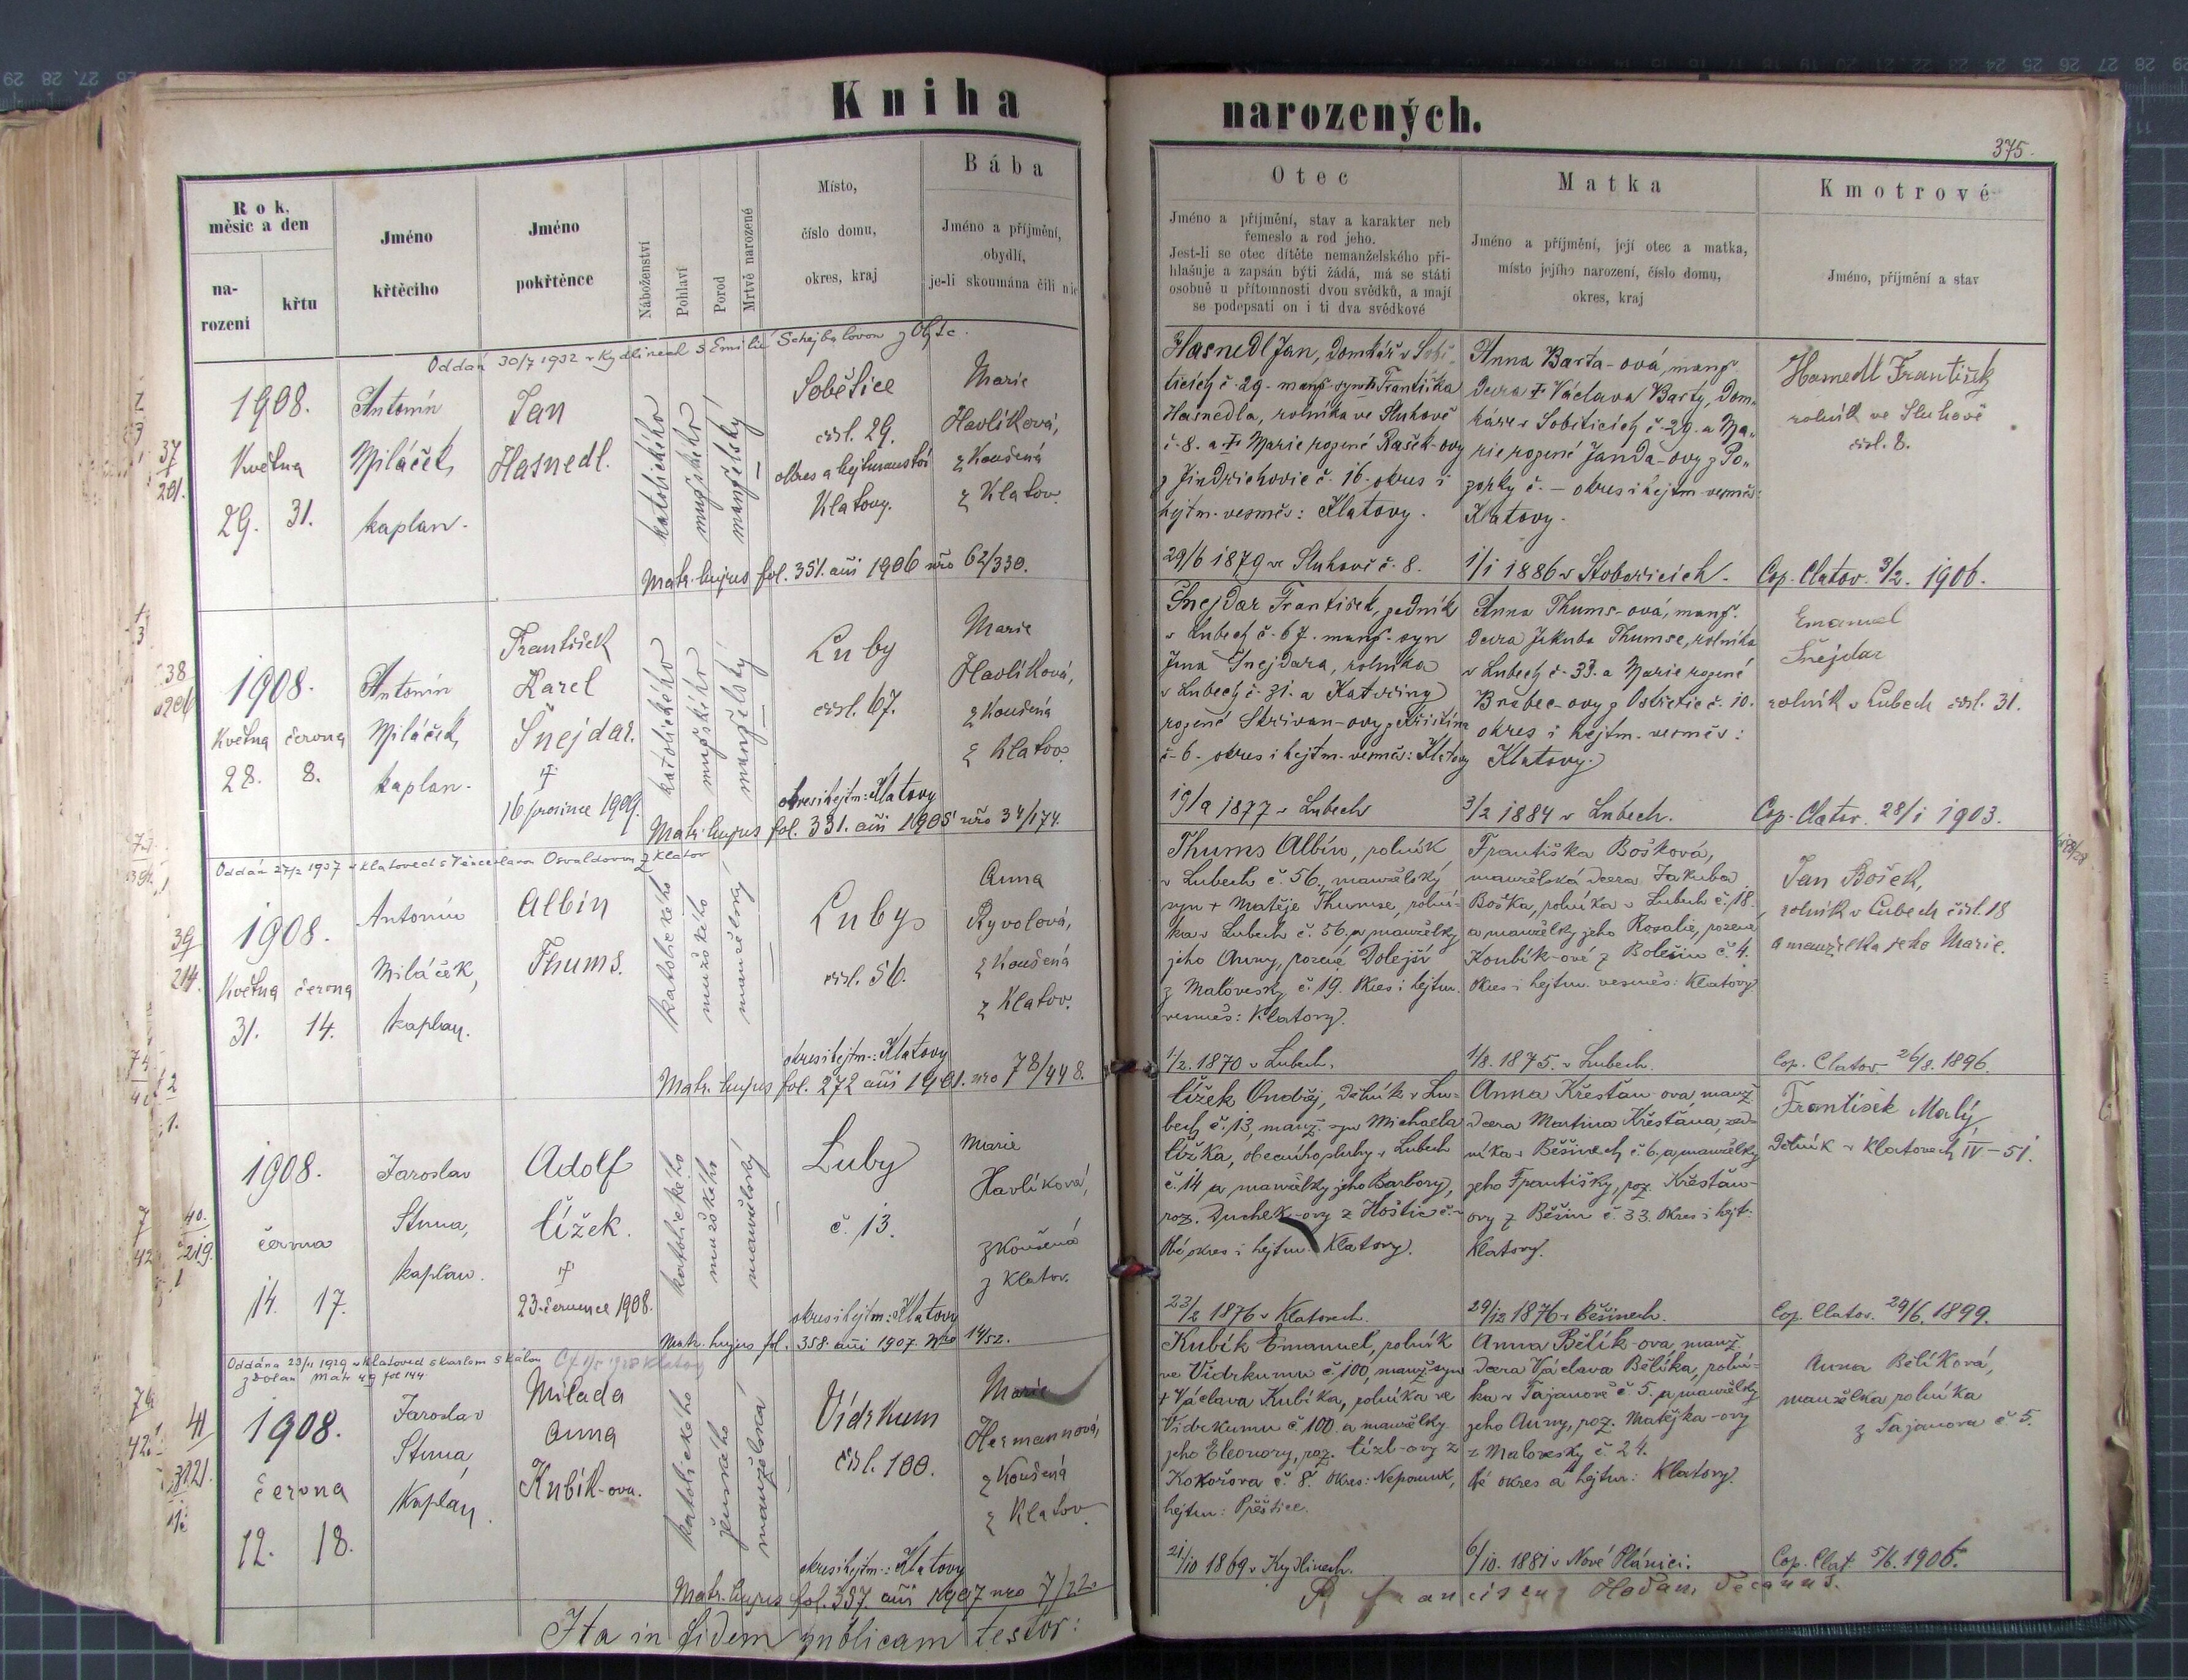 Kniha
narozených.
375.
Rok,
měsíc a den
na-
rození
křtu
Jméno
křtěcího
Jméno
pokřtěnce
Náboženství
Pohlaví
Porod
Mrtvě narozené
Místo,
číslo domu,
okres, kraj
Bába
Jméno a příjmění,
obydlí,
je-li skoumána čili nic
Otec
Jméno a příjmění, stav a karakter neb
řemeslo a rod jeho.
Jest-li se otec dítěte nemanželského při-
hlašuje a zapsán býti žádá, má se státi
osobně u přítomnosti dvou svědků, a mají
se podepsati on i ti dva svědkové
Matka
Jméno a příjmění, její otec a matka,
místo jejího narození, číslo domu,
okres, kraj
Kmotrové
Jméno, příjmění a stav
Oddán 30/7 1932 v Kydlinech s Emilií Schejbalovou z
37
201.
1908.
Května
29. 31.
Antonín
Miláček,
kaplan.
Jan
Hasnedl.
katolického
mužského
manželský
Sobětice
čísl. 29.
okres a hejtmanství
Klatovy.
Marie
Havlíková,
zkoušená
z Klatov.
Matr. hujus fol. 351. ani 1906 nro 62/330.
Hasnedl Jan, domkář v Sobě-
ticích č. 29. manž. syn † Františka
Hasnedla, rolníka ve Sluhově
č. 8. a † Marie rozené Rašek-ovy
z Jindřichovic č. 16. okres i
hejtm. vesměs: Klatovy.
29/6 1879 ve Sluhově č. 8.
Anna Barta-ová, manž.
dcera † Václava Barty, dom-
káře v Soběticích č. 29. a Ma-
rie rozené Janda-ovy z Po-
zorky č. – okres i hejtm. vesměs:
Klatovy.
1/1 1886 v Stobořicích.
Hasnedl František
rolník ve Sluhově
čísl. 8.
Cop. Clatov. 3/2. 1906.
38
206
1908.
Května června
28. 8.
Antonín
Miláček,
kaplan.
František
Karel
Šnejdar.
†
16 prosince 1909.
katolického
mužského
manželský
Luby
čísl. 67.
okres i hejtm.: Klatovy
Marie
Havlíková,
zkoušená
z Klatov.
Matr. hujus fol. 331. ani 1905 nro 34/174.
Šnejdar František, zedník
v Lubech č. 67. manž. syn
Jana Šnejdara, rolníka
v Lubech č. 31. a Kateřiny
rozené Skřivan-ovy z Křištína
č. 6. okres i hejtm. vesměs: Klatovy
19/9 1877 v Lubech
Anna Thums-ová, manž.
dcera Jakuba Thumse, rolníka
v Lubech č. 33. a Marie rozené
Brabec-ovy z Ostřetic č. 10.
okres i hejtm. vesměs:
Klatovy.
3/2 1884 v Lubech.
Emanuel
Šnejdar
rolník v Lubech čísl. 31.
Cop. Clatov. 28/1 1903.
Oddán 27/2 1937 v Klatovech s Věnceslavou Osvaldovou z Klatov
39
214.
1908.
Května června
31. 14.
Antonín
Miláček,
kaplan.
Albín
Thums.
katolického
mužského
manželský
Luby
čísl. 56.
okres i hejtm.: Klatovy
Anna
Ryvolová,
zkoušená
z Klatov.
Matr. hujus fol. 272 ani 1901. nro 78/448.
Thums Albín, rolník
v Lubech č. 56., manželský
syn † Matěje Thumse, rolní-
ka v Lubech č. 56. a manželky
jeho Anny, rozené Dolejší
z Malovesky č. 19. Okres i hejtm.
vesměs: Klatovy.
1/2. 1870 v Lubech.
Františka Bošková,
manželská dcera Jakuba
Boška, rolníka v Lubech č. 18.
a manželky jeho Rosalie, rozené
Koubík-ové z Bolešin č. 4.
Okres i hejtm. vesměs: Klatovy
1/8. 1875. v Lubech.
Jan Bošek,
rolník v Lubech čísl. 18
a manželka jeho Marie.
Cop. Clatov. 26/8. 1896.
40.
219.
1908.
června
14. 17.
Jaroslav
Stuna,
kaplan.
Adolf
Čížek.
†
23. července 1908.
katolického
mužského
manželský
Luby
č. 13.
okres i hejtm.: Klatovy
Marie
Havlíková,
zkoušená
z Klatov.
Matr. hujus fol. 358. ani 1907. nro 14/52.
Čížek Ondřej, dělník v Lu-
bech č. 13, manž. syn Michaela
Čížka, obecního sluhy v Lubech
č. 14 a manželky jeho Barbory,
roz. Duchek-ovy z Hoštic č. –
Obé okres i hejtm. Klatovy.
23/2 1876 v Klatovech.
Anna Křesťan-ova, manž.
dcera Martina Křesťana, zed-
níka v Běšinech č. 6. a manželky
jeho Františky, roz. Křesťan-
ovy z Běšin č. 33. Okres i hejt.
Klatovy.
29/12 1876 v Běšinech.
František Malý,
dělník v Klatovech IV – 51.
Cop. Clatov. 29/6. 1899.
Oddána 23/11 1929 v Klatovech s Karlem Skálou
41
1908.
června
12. 18.
Jaroslav
Stuna
Kaplan.
Milada
Anna
Kubík-ova.
katolického
ženského
manželská
Vídrkum
čísl. 100.
okres i hejtm.: Klatovy
Marie
Hermannová,
zkoušená
z Klatov
Matr. hujus fol. 357. ani 1907 nro 7/22.
Kubík Emanuel, rolník
ve Vídrkumu č. 100, manž. syn
† Václava Kubíka, rolníka ve
Vídrkumu č. 100. a manželky
jeho Eleonory, roz. Čížl-ovy z
Kokořova č. 8. Okres: Nepomuk,
hejtm: Přeštice.
21/10 1869 v Kydlinech.
Anna Bělík-ova, manž.
dcera Václava Bělíka, rolní-
ka v Tajanově č. 5. a manželky
jeho Anny, roz. Matějka-ovy
z Malovesky č. 24.
Obé okres a hejtm: Klatovy.
6/10. 1881 v Nové Plánici.
Anna Bělíková,
manželka rolníka
z Tajanova č. 5.
Cop. Clat. 5/6. 1906.
Ita in fidem publicam testor:
P. Franciscus Hodan, Decanus.